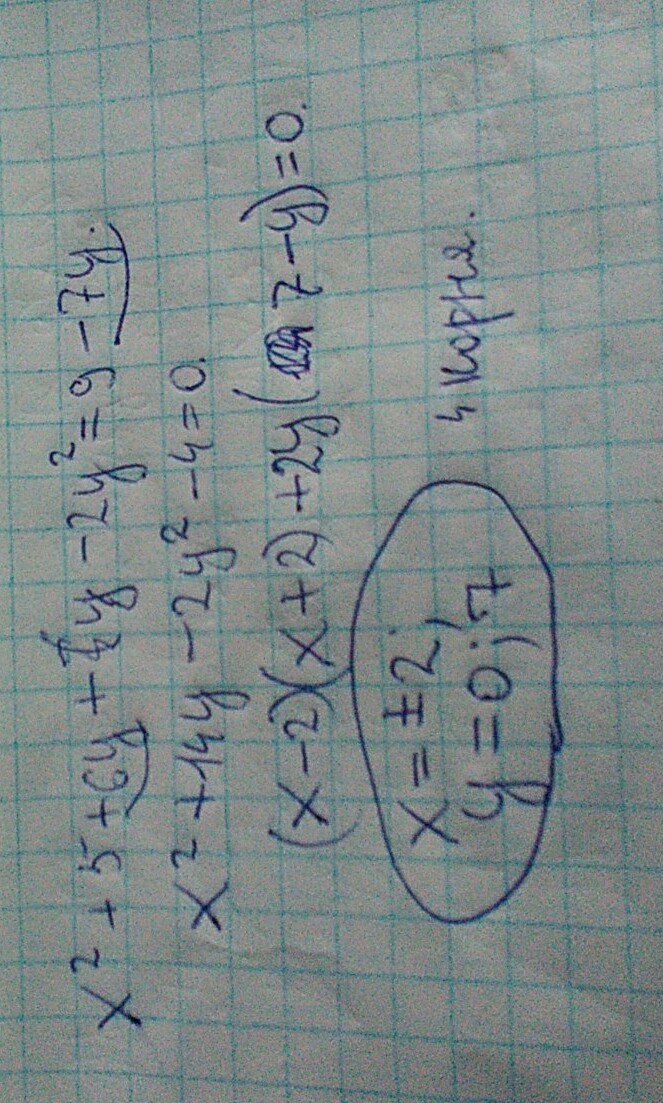 x² + 5 + 6y + 1y − 2y² = 9 − 7y.
x² + 14y − 2y² − 4 = 0.
(x − 2)(x + 2) + 2y(7 − y) = 0.
x = ± 2;
y = 0; 7
4 корня.